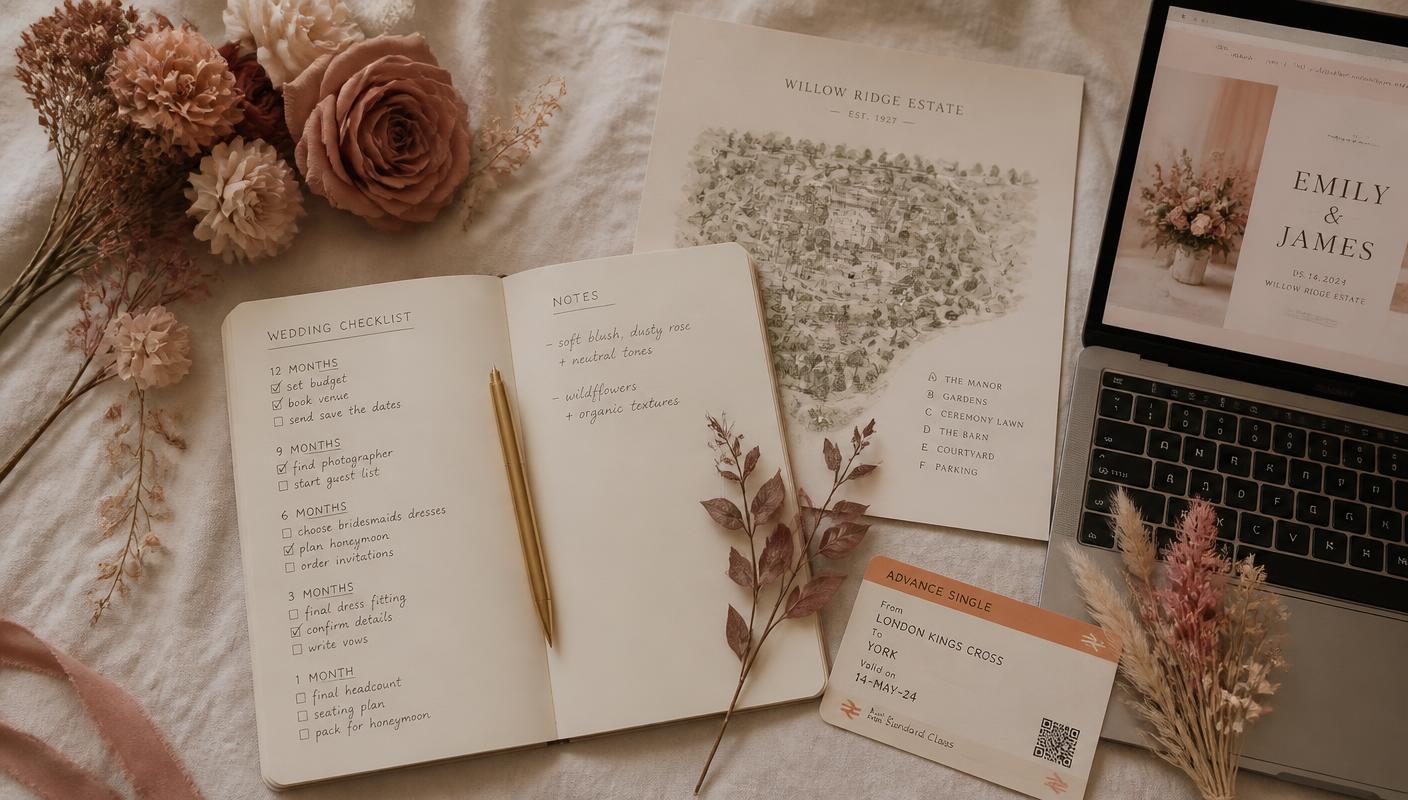 WEDDING CHECKLIST
12 MONTHS
☑ set budget
☑ book venue
☐ send save the dates
9 MONTHS
☑ find photographer
☐ start guest list
6 MONTHS
☐ choose bridesmaids dresses
☑ plan honeymoon
☐ order invitations
3 MONTHS
☐ final dress fitting
☑ confirm details
☐ write vows
1 MONTH
☐ final headcount
☐ seating plan
☐ pack for honeymoon
NOTES
– soft blush, dusty rose
+ neutral tones
– wildflowers
+ organic textures
WILLOW RIDGE ESTATE
— EST. 1927 —
A THE MANOR
B GARDENS
C CEREMONY LAWN
D THE BARN
E COURTYARD
F PARKING
EMILY
&
JAMES
05.16.2024
WILLOW RIDGE ESTATE
ADVANCE SINGLE
From
LONDON KINGS CROSS
To
YORK
Valid on
14-MAY-24
Class